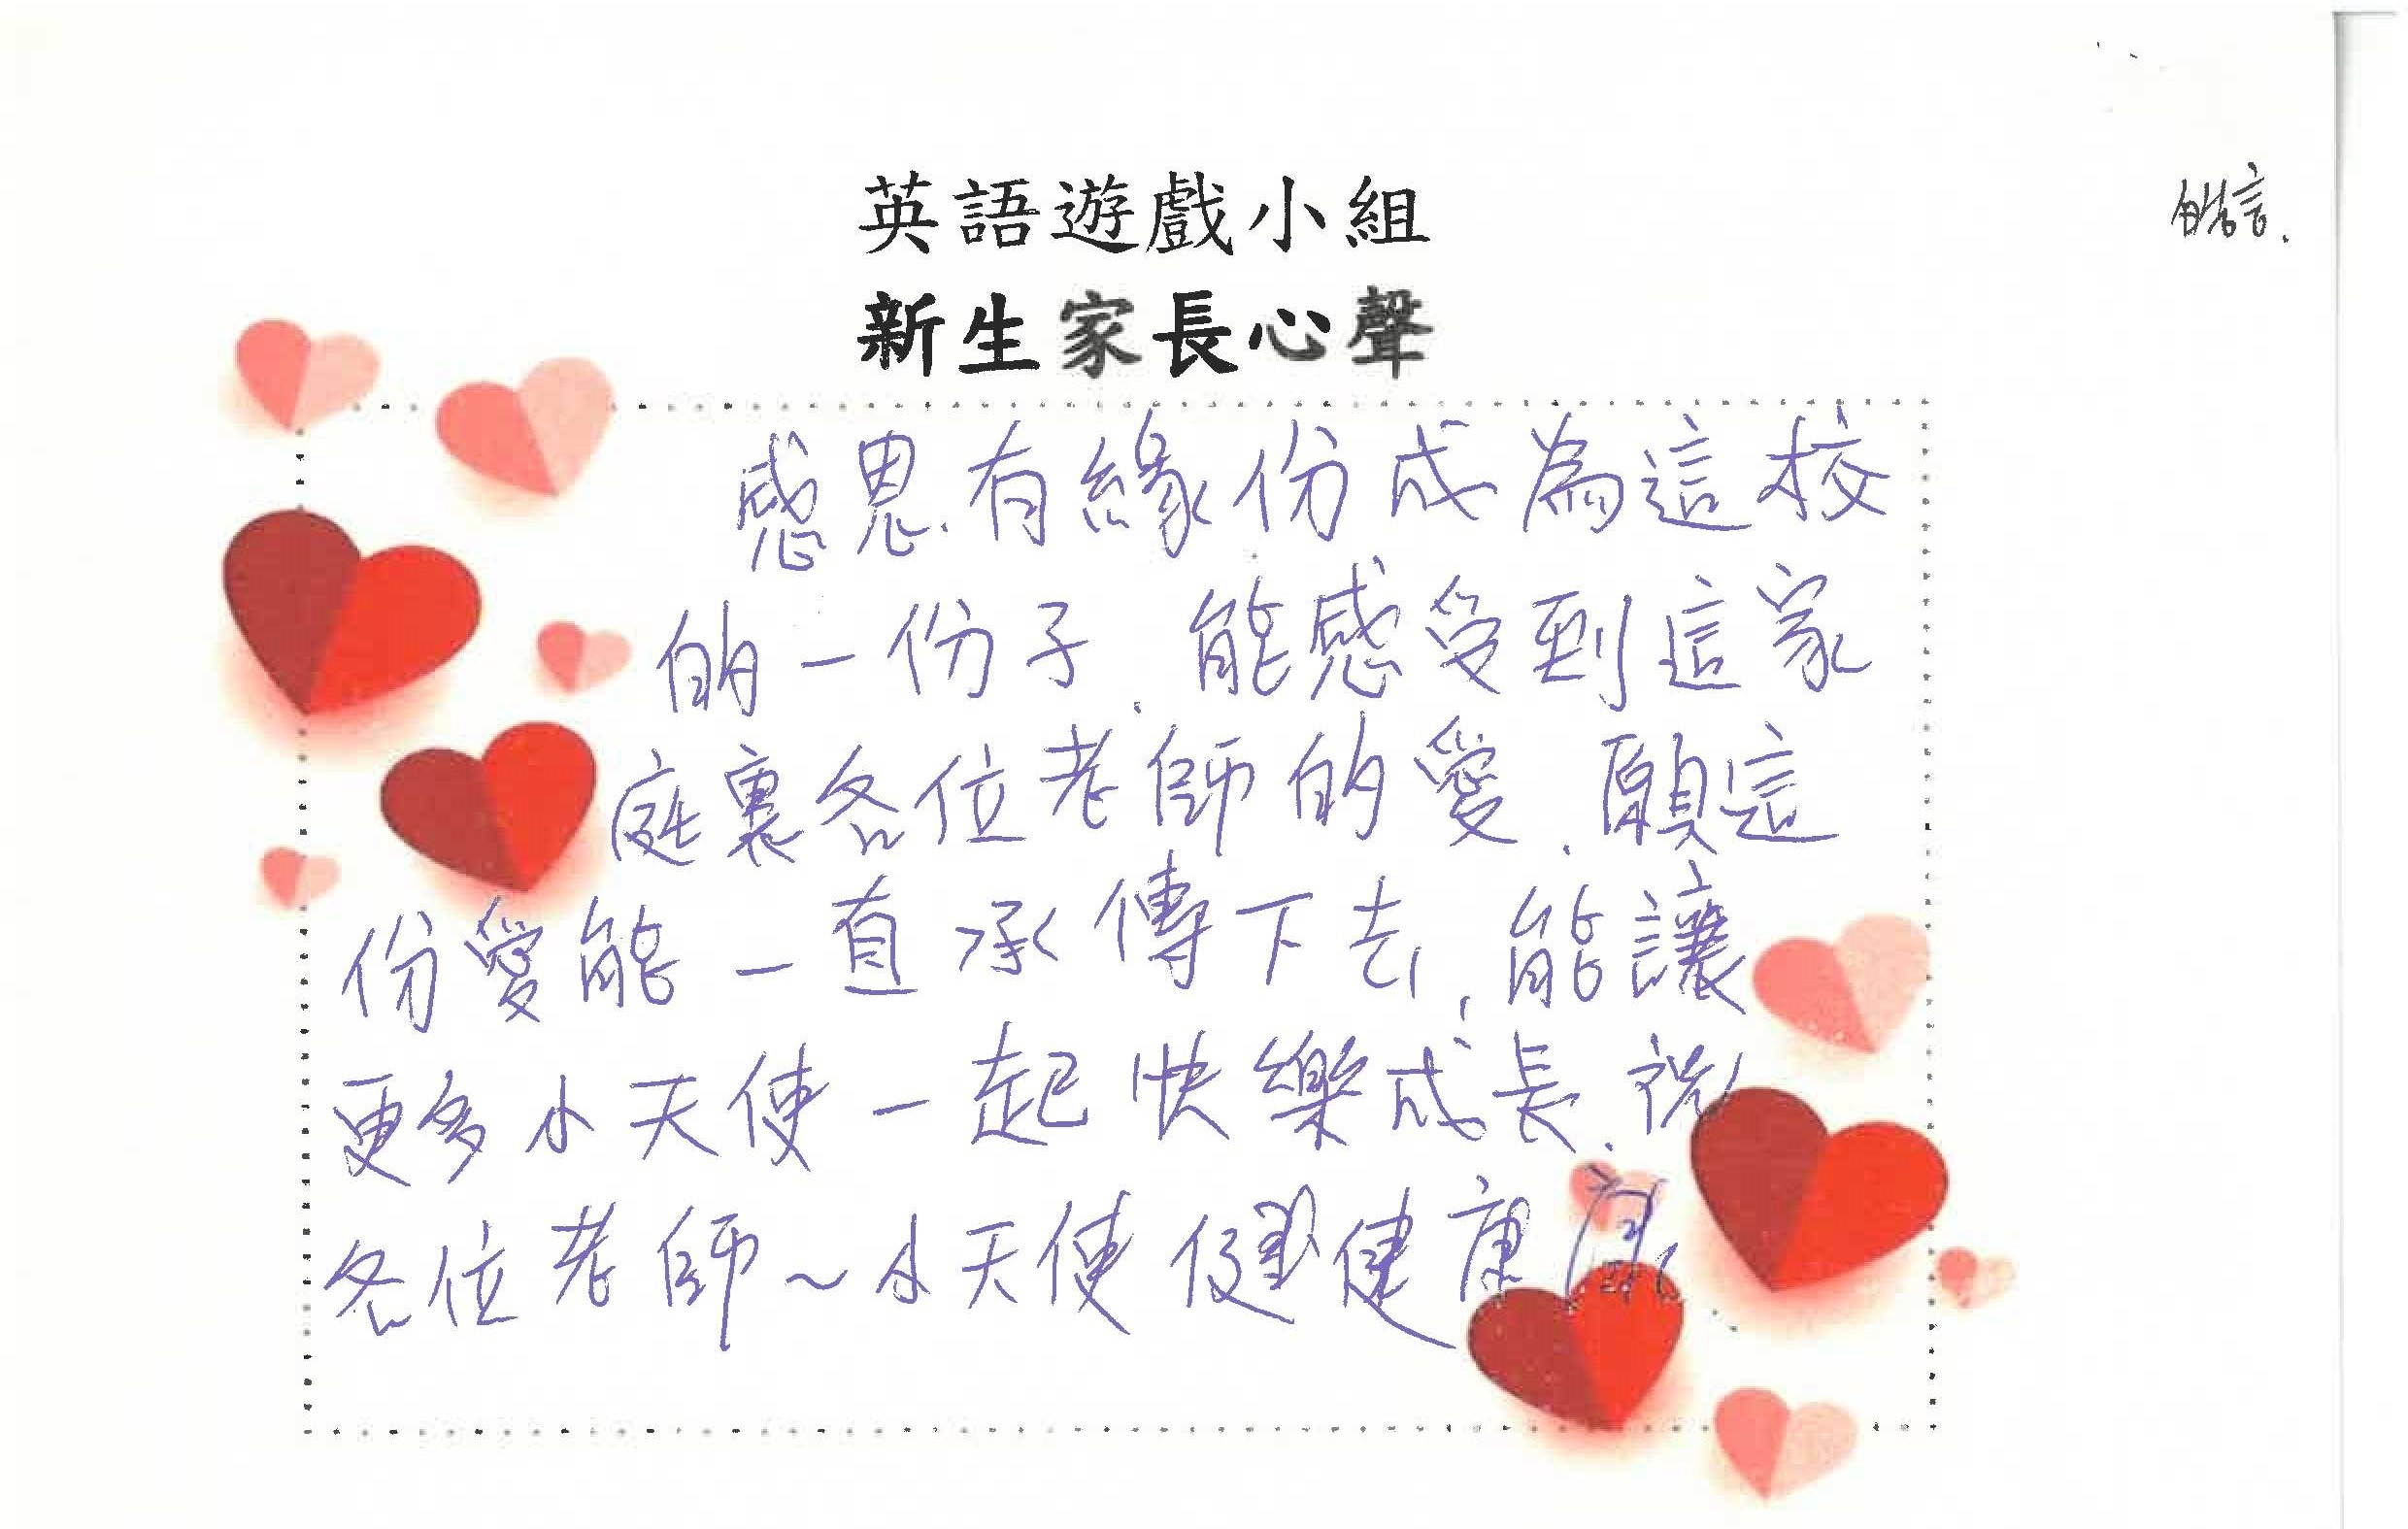 英語遊戲小組
皓言.
新生家長心聲
感恩.有緣份成為這校
的一份子.能感受到這家
庭裏各位老師的愛.願這
份愛能一直承傳下去,能讓
更多小天使一起快樂成長.祝
各位老師~小天使健康